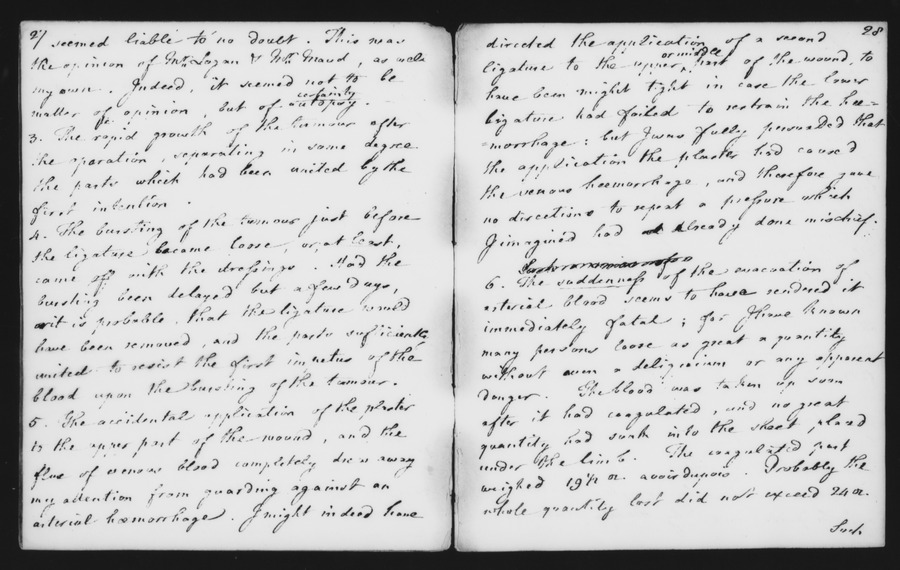 27
seemed liable to no doubt. This was
the opinion of Mr. Logan & Mr. Maud, as well as
my own. Indeed, it seemed not to be
matter of opinion, but of certainty autopsy.
3. The rapid growth of the tumour after
the operation, separating in some degree
the parts which had been united by the
first intention.
4. The bursting of the tumour just before
the ligature became loose, or, at least,
came off with the dressings. Had the
bursting been delayed but a few Days,
it is probable, that the ligature would
have been removed, and the parts sufficiently
united to resist the first impetus of the
blood upon the bursting of the tumour.
5. The accidental application of the plaster
to the upper part of the wound, and the
flux of venous blood completely drew away
my attention from guarding against an
arterial hæmorrhage. I might indeed have
28
directed the application of a second
ligature to the upper or middle part of the wound, to
have been might tight in case the lower
ligature had failed to restrain the hæ=
=morrhage: but I was fully persuaded that
the application the plaster had caused
the venous hæmorrhage, and therefore gave
no directions to repeat a pressure which
I imagined had already done mischief.
6. The suddenness of the evacuation of
arterial blood seems to have rendered it
immediately fatal; for I have known
many persons loose as great a quantity
without even a deliquium or any apparent
danger. The blood was taken up soon
after it had coagulated, and no great
quantity had sunk into the sheet, placed
under the limb. The coagulated part
weighed 19½ oz. avoirdupois. Probably the
whole quantity lost did not exceed 24 oz.
Such